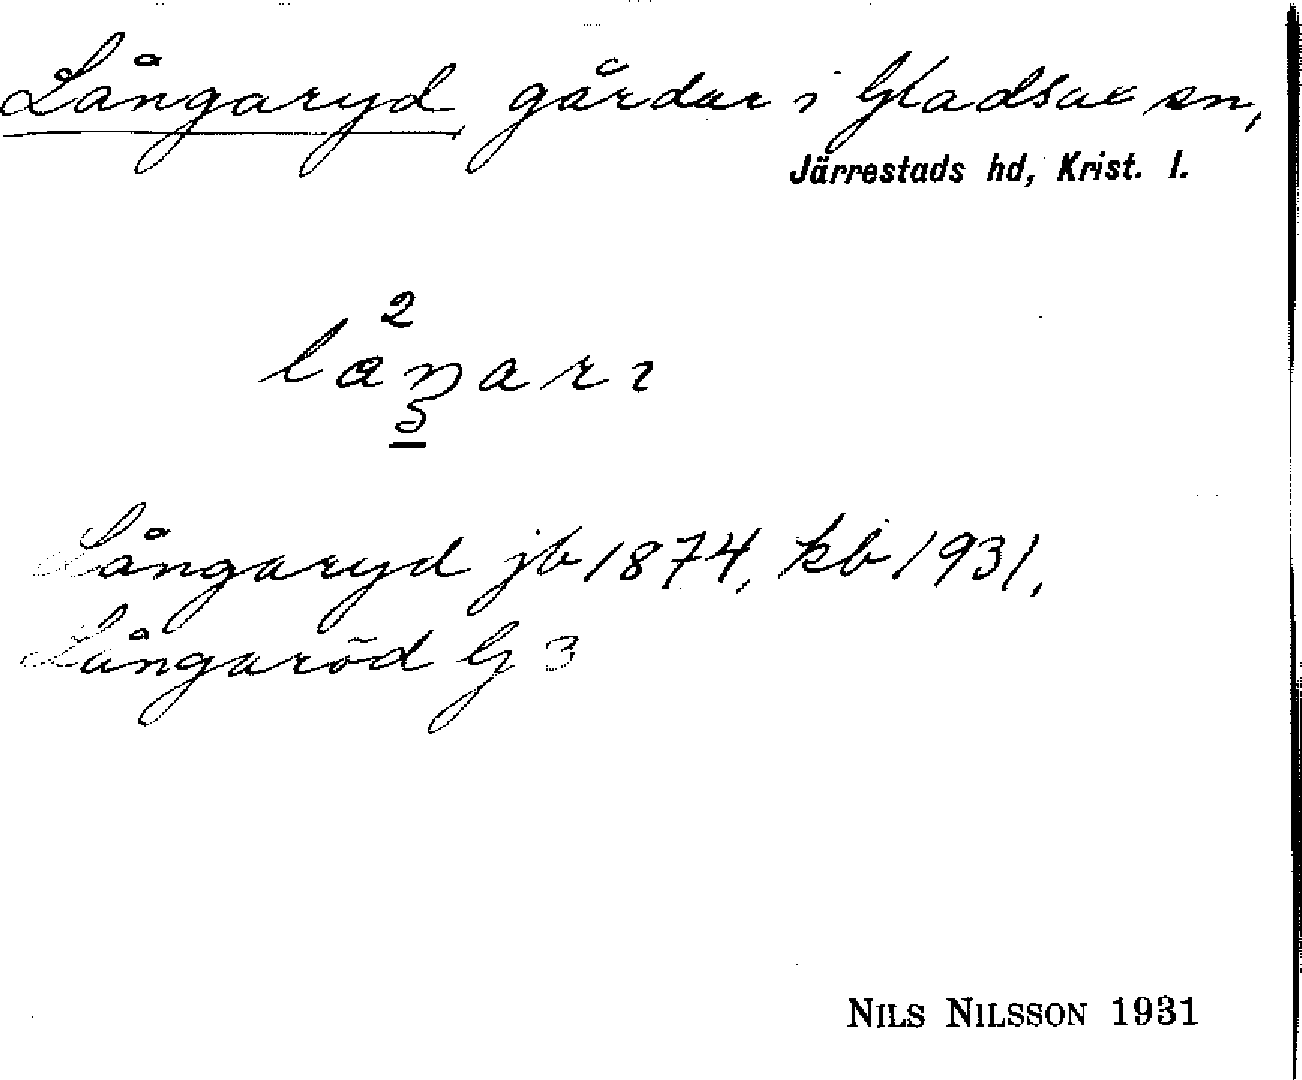 Långaryd gårdar i Gladsax sn,
Järrestads hd, Krist. l.
2
laŋarı
5
Långaryd jb 1874, kb 1931,
Långaröd G 3
NILS NILSSON 1931